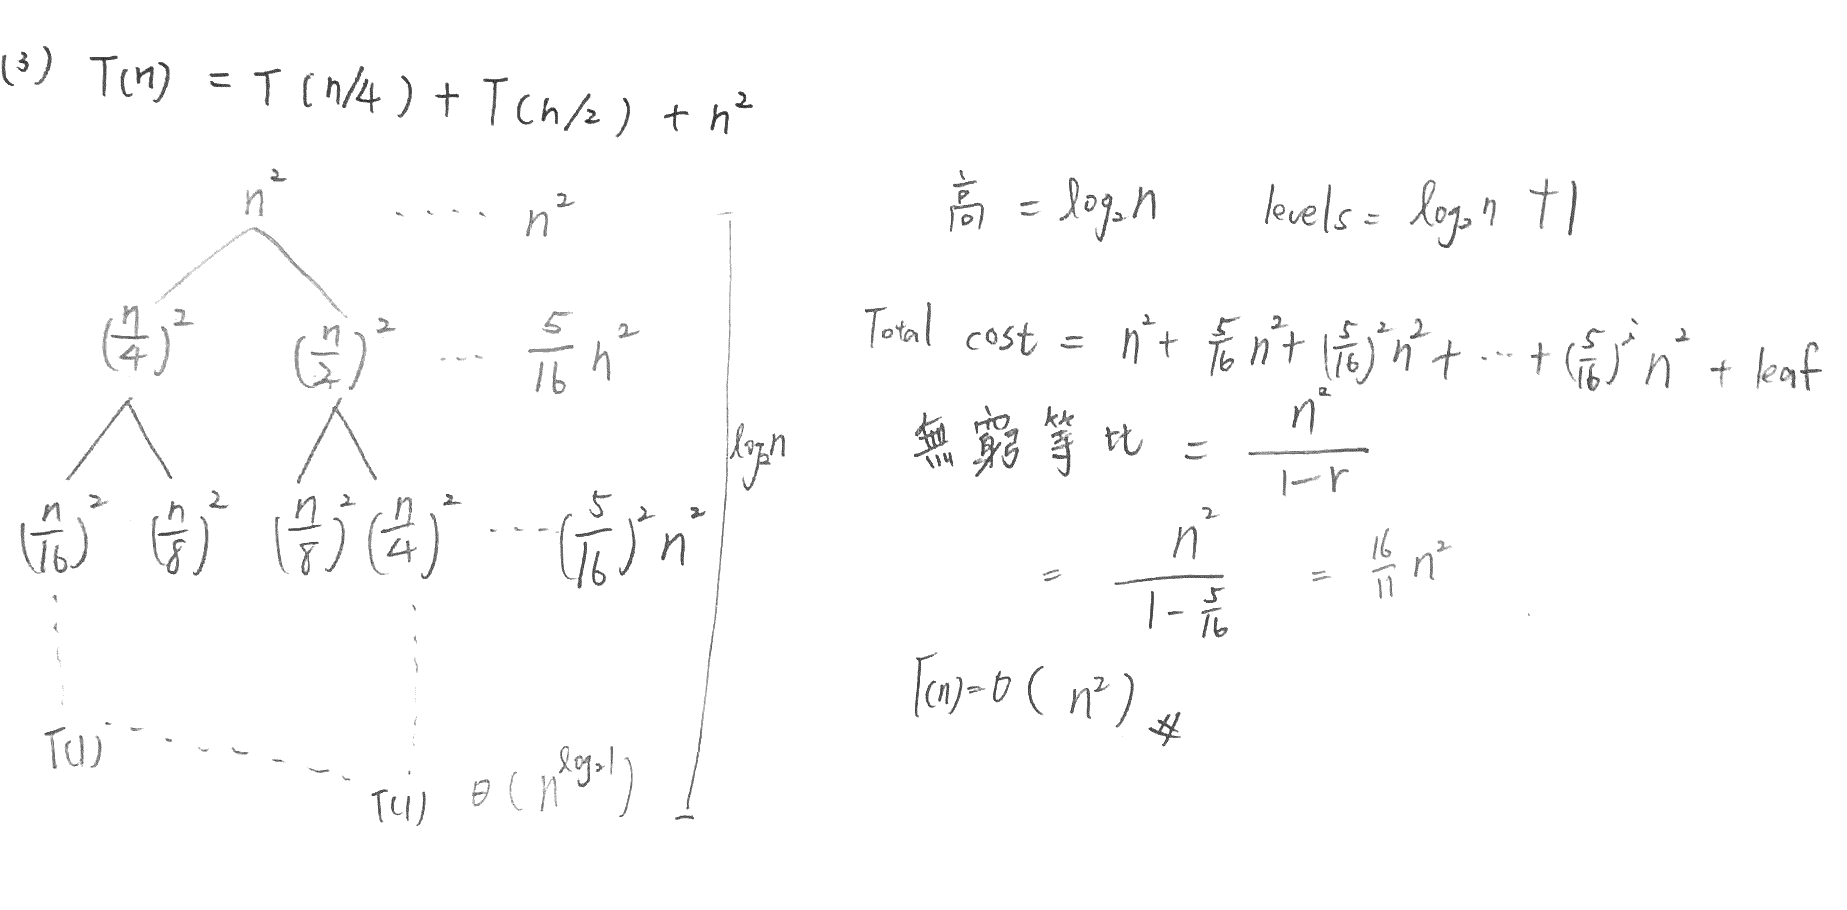 (3) T(n) = T(n/4) + T(n/2) + n²
n² .... n²
(n/4)² (n/2)² ... 5/16 n²
(n/16)² (n/8)² (n/8)² (n/4)² ... (5/16)² n²
log₂n
T(1) ... T(1) θ(n^log₂1)
高 = log₂n levels = log₂n +1
Total cost = n² + 5/16 n² + (5/16)² n² + ... + (5/16)^i n² + leaf
無窮等比 = n²/(1-r)
= n²/(1 - 5/16) = 16/11 n²
T(n) = θ(n²) #